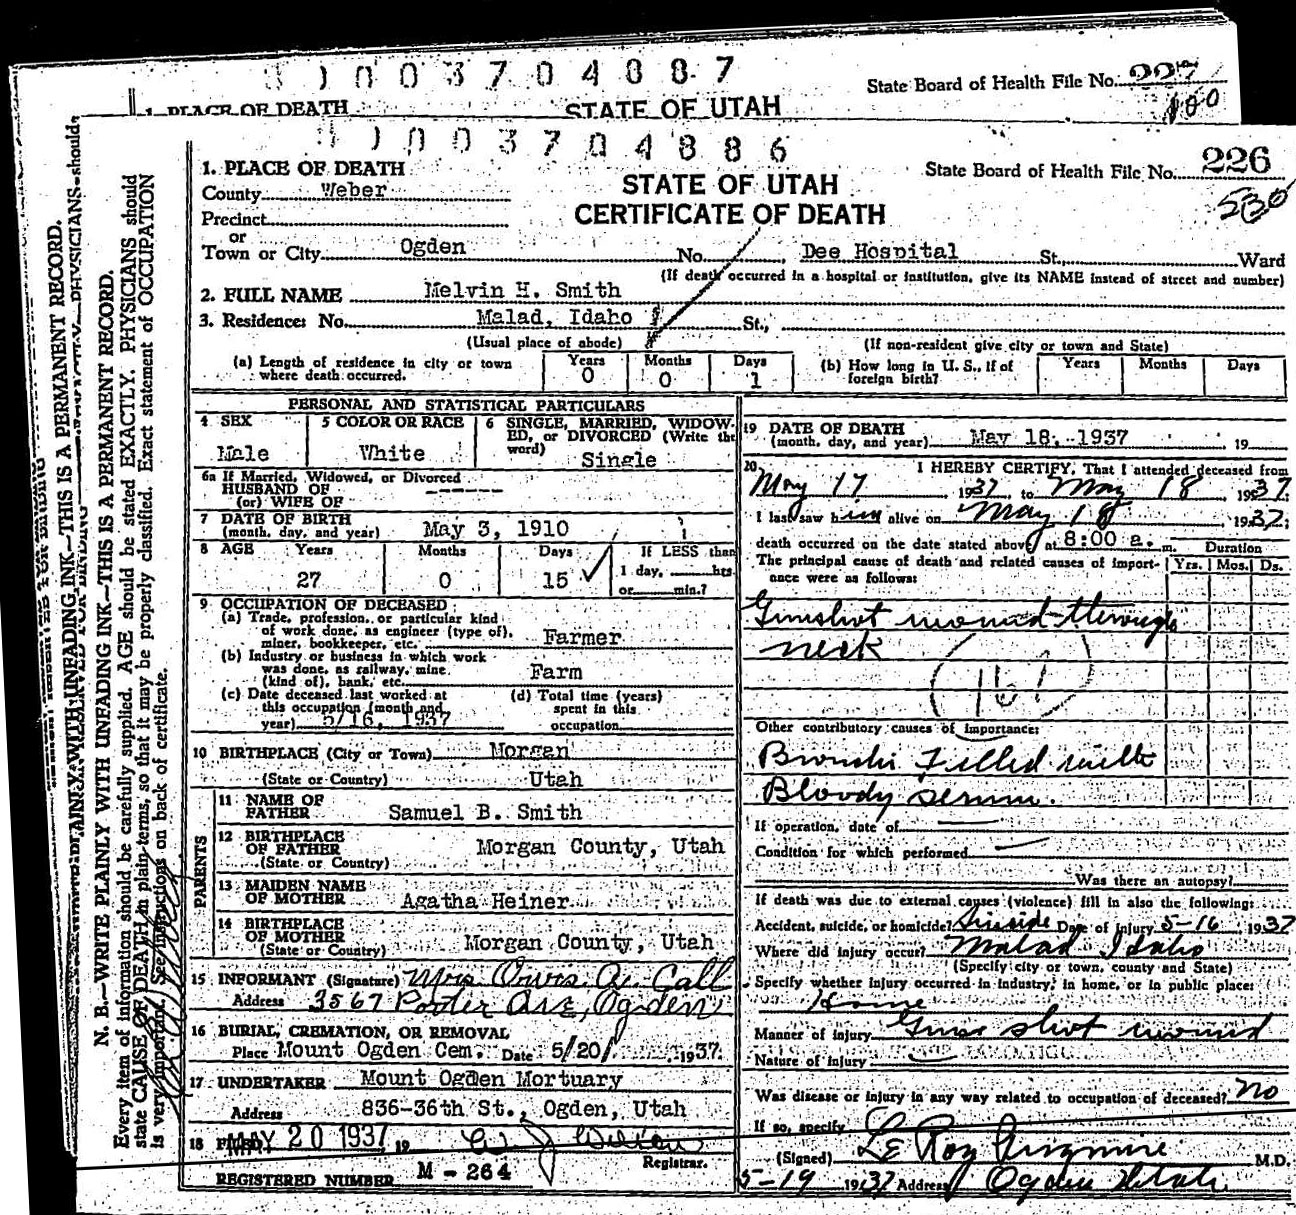 1003704887
State Board of Health File No. 227
1. PLACE OF DEATH
STATE OF UTAH
1003704886
1. PLACE OF DEATH
State Board of Health File No. 226
County Weber
STATE OF UTAH
Precinct
CERTIFICATE OF DEATH
or
Town or City Ogden No. Dee Hospital St., Ward
(If death occurred in a hospital or institution, give its NAME instead of street and number)
2. FULL NAME Melvin H. Smith
3. Residence: No. Malad, Idaho St.,
(Usual place of abode) (If non-resident give city or town and State)
(a) Length of residence in city or town where death occurred. Years 0 Months 0 Days 1
(b) How long in U. S., if of foreign birth? Years Months Days
PERSONAL AND STATISTICAL PARTICULARS
4 SEX Male
5 COLOR OR RACE White
6 SINGLE, MARRIED, WIDOWED, or DIVORCED (Write the word) Single
6a If Married, Widowed, or Divorced
HUSBAND OF
(or) WIFE OF
7 DATE OF BIRTH
(month, day, and year) May 3, 1910
8 AGE Years 27 Months 0 Days 15 If LESS than
1 day, hrs.
or min.?
9 OCCUPATION OF DECEASED
(a) Trade, profession, or particular kind
of work done, as engineer (type of),
miner, bookkeeper, etc. Farmer
(b) Industry or business in which work
was done, as railway, mine
(kind of), bank, etc. Farm
(c) Date deceased last worked at
this occupation (month and
year) 5/16, 1937
(d) Total time (years)
spent in this
occupation
10 BIRTHPLACE (City or Town) Morgan
(State or Country) Utah
PARENTS
11 NAME OF
FATHER Samuel B. Smith
12 BIRTHPLACE
OF FATHER Morgan County, Utah
(State or Country)
13 MAIDEN NAME
OF MOTHER Agatha Heiner
14 BIRTHPLACE
OF MOTHER
(State or Country) Morgan County, Utah
15 INFORMANT (Signature) Mrs Orvis A. Call
Address 3567 Porter Ave, Ogden
16 BURIAL, CREMATION, OR REMOVAL
Place Mount Ogden Cem. Date 5/20/ 1937
17 UNDERTAKER Mount Ogden Mortuary
Address 836-36th St., Ogden, Utah
18 FILED MAY 20 1937 19
Registrar.
REGISTERED NUMBER M - 264
19 DATE OF DEATH
(month, day, and year) May 18, 1937 19
20 I HEREBY CERTIFY, That I attended deceased from
May 17 1937, to May 18, 1937
I last saw him alive on May 18 1937;
death occurred on the date stated above, at 8:00 a. m. Duration
The principal cause of death and related causes of importance were as follows: Yrs. Mos. Ds.
Gunshot wound through
neck
Other contributory causes of importance:
Bronchi Filled with
Bloody serum.
If operation, date of
Condition for which performed
Was there an autopsy?
If death was due to external causes (violence) fill in also the following:
Accident, suicide, or homicide? Suicide Date of injury 5-16 1937
Where did injury occur? Malad Idaho
(Specify city or town, county and State)
Specify whether injury occurred in industry, in home, or in public place:
Home
Manner of injury Gun shot wound
Nature of injury
Was disease or injury in any way related to occupation of deceased? No
If so, specify
(Signed) M.D.
5-19 1937 Address Ogden Utah
N. B.—WRITE PLAINLY WITH UNFADING INK—THIS IS A PERMANENT RECORD.
Every item of information should be carefully supplied. AGE should be stated EXACTLY. PHYSICIANS should
state CAUSE OF DEATH in plain terms, so that it may be properly classified. Exact statement of OCCUPATION
is very important. See instructions on back of certificate.